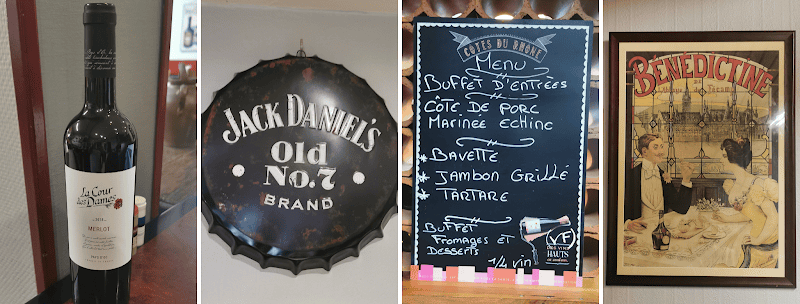 La Cour
des Dames
MERLOT
JACK DANIEL'S
Old
No.7
BRAND
CÔTES DU RHÔNE
Menu
BUFFET D'ENTRÉES
CÔTE DE PORC
MARINÉE ECHINE
* BAVETTE
* JAMBON GRILLÉ
* TARTARE
BUFFET
FROMAGES ET
DESSERTS
1/4 vin
VF
DES VINS
HAUTS
en couleurs
BÉNÉDICTINE